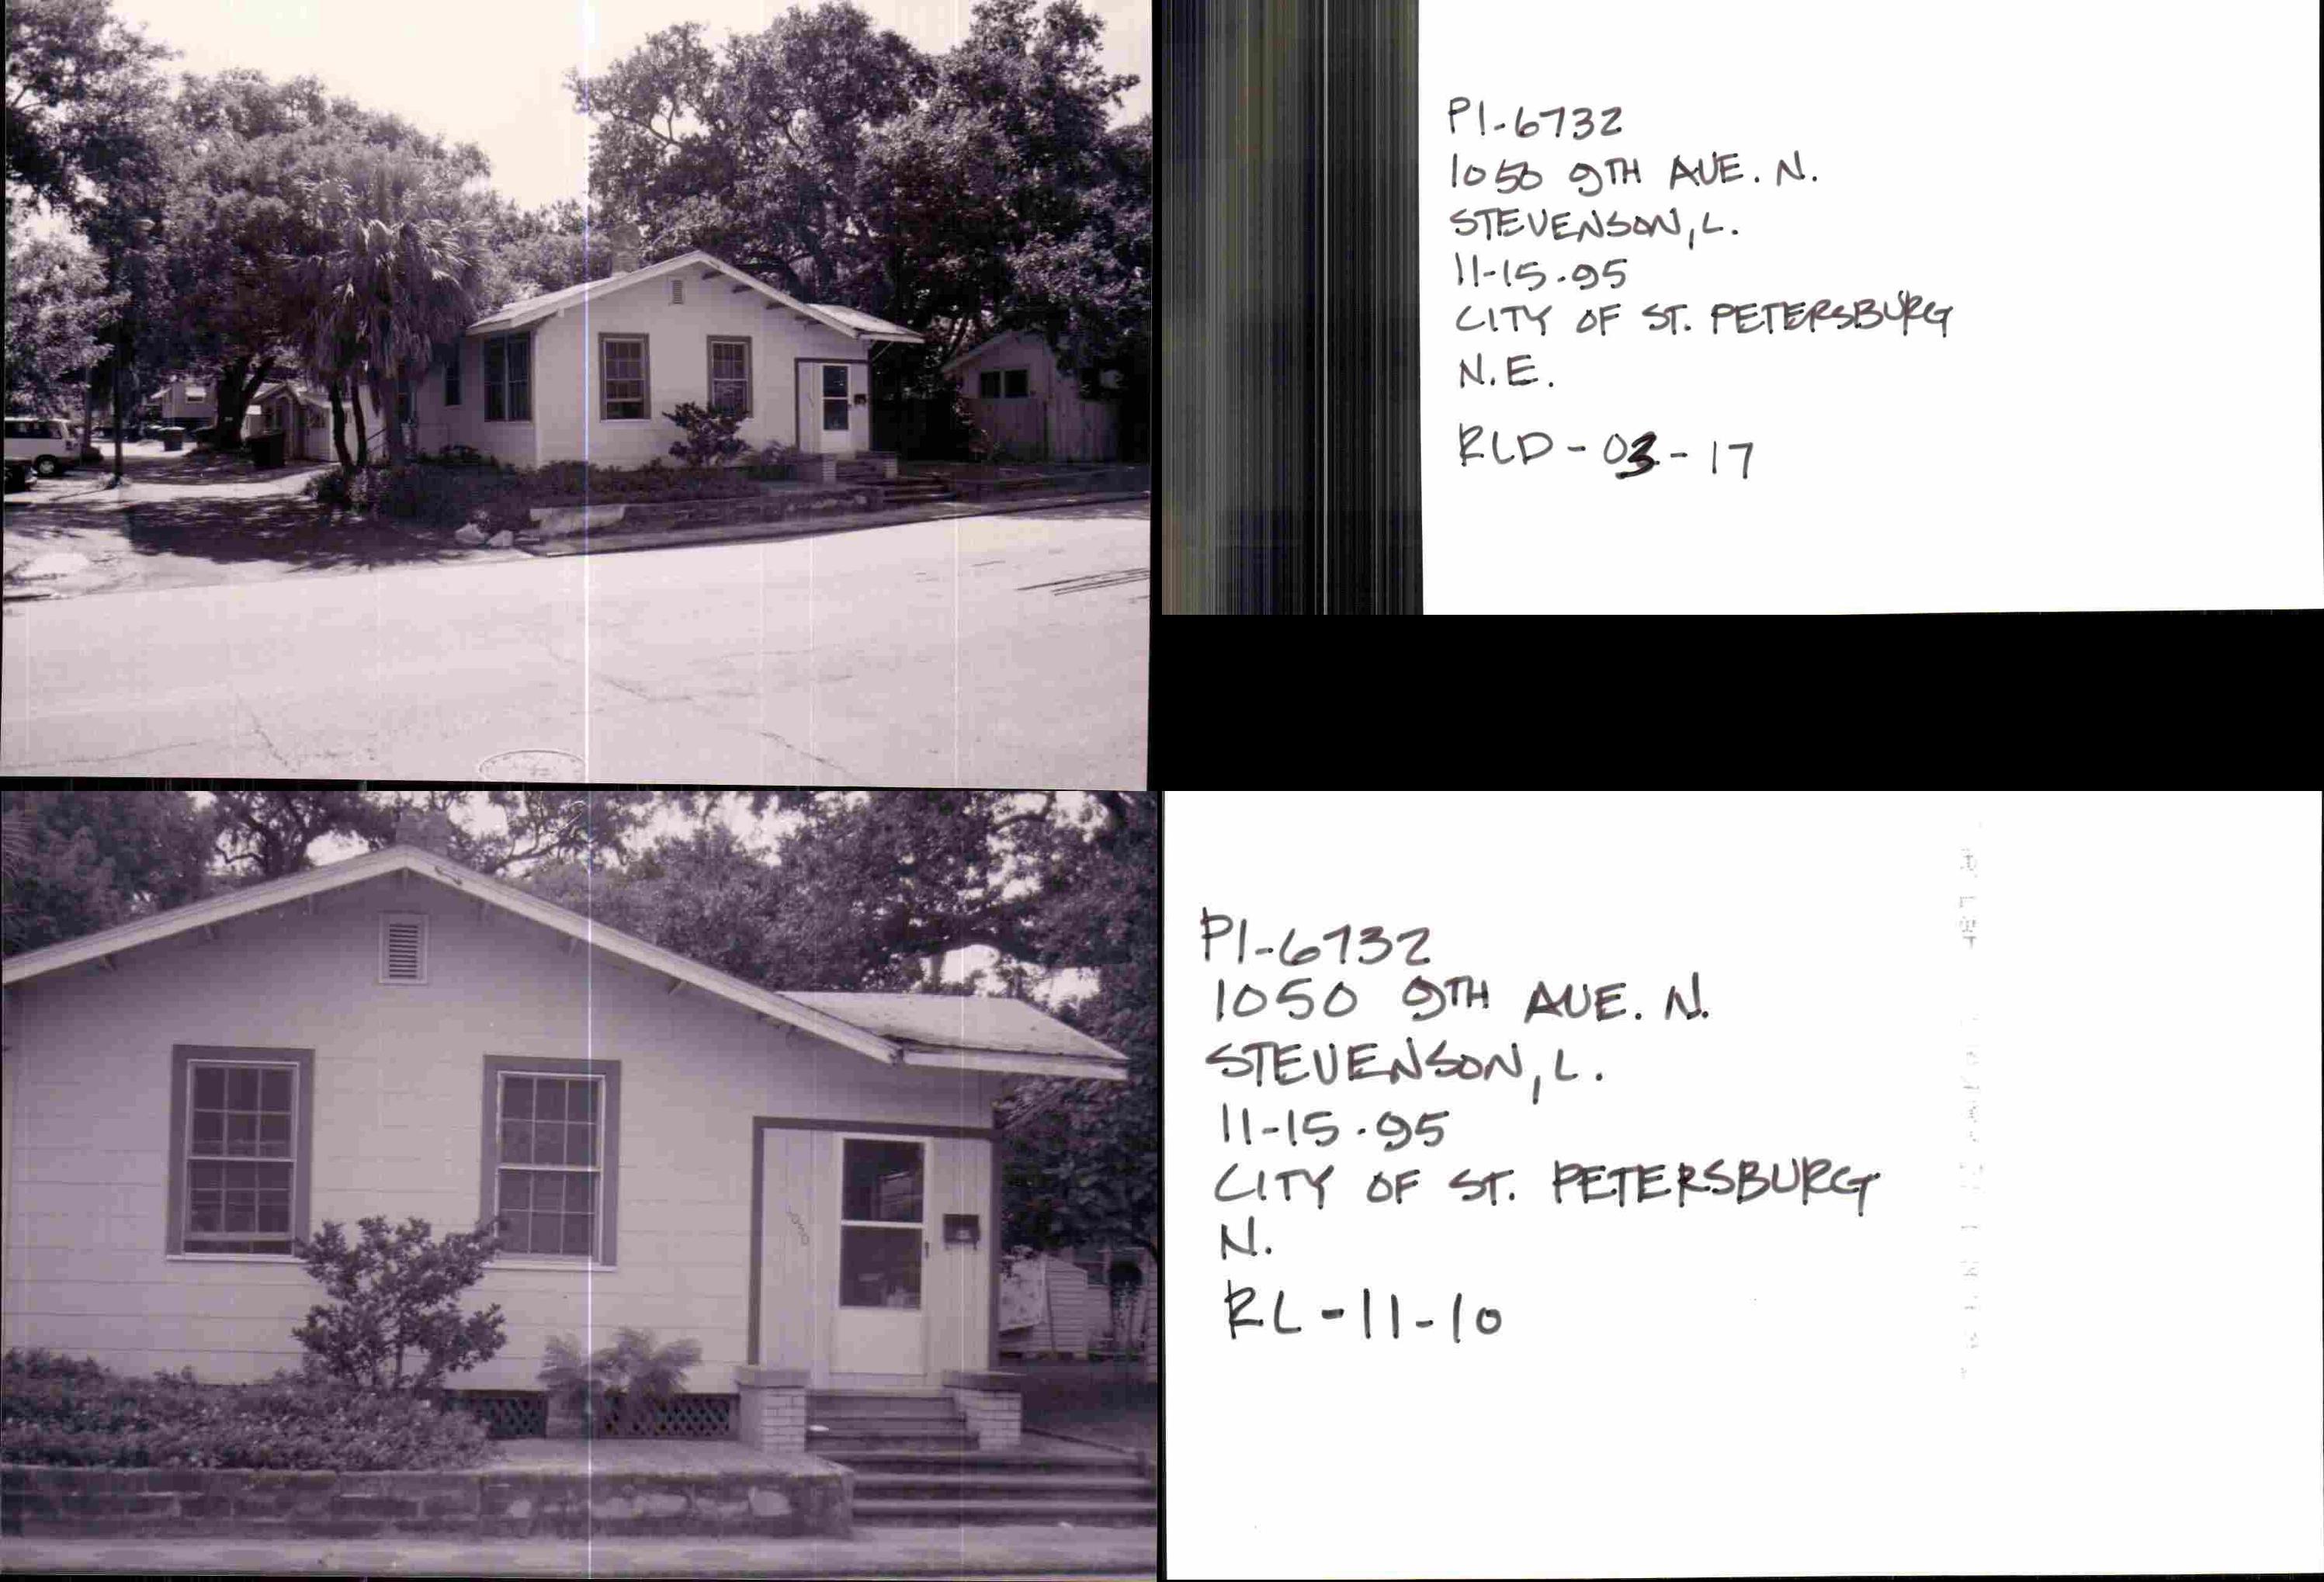 PI-6732
1050 9TH AVE. N.
STEVENSON, L.
11-15-95
CITY OF ST. PETERSBURG
N.E.
RLD-03-17
1050
PI-6732
1050 9TH AVE. N.
STEVENSON, L.
11-15-95
CITY OF ST. PETERSBURG
N.
RL-11-10